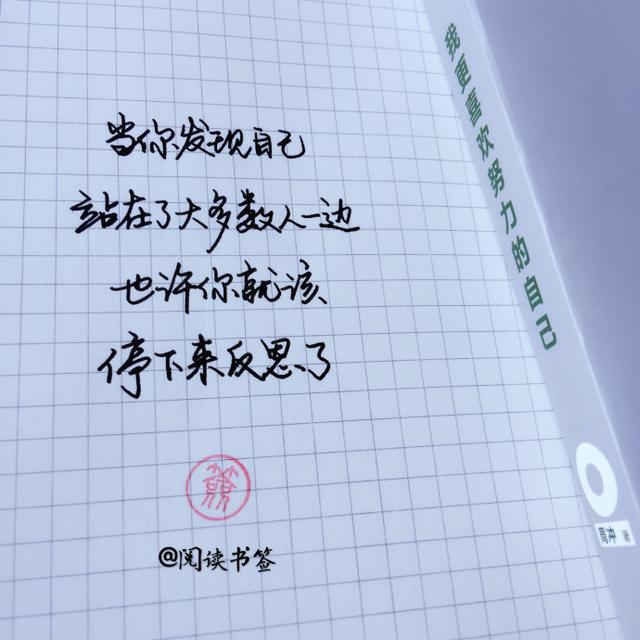 当你发现自己
站在了大多数人一边
也许你就该、
停下来反思了
@阅读书签
我更喜欢努力的自己